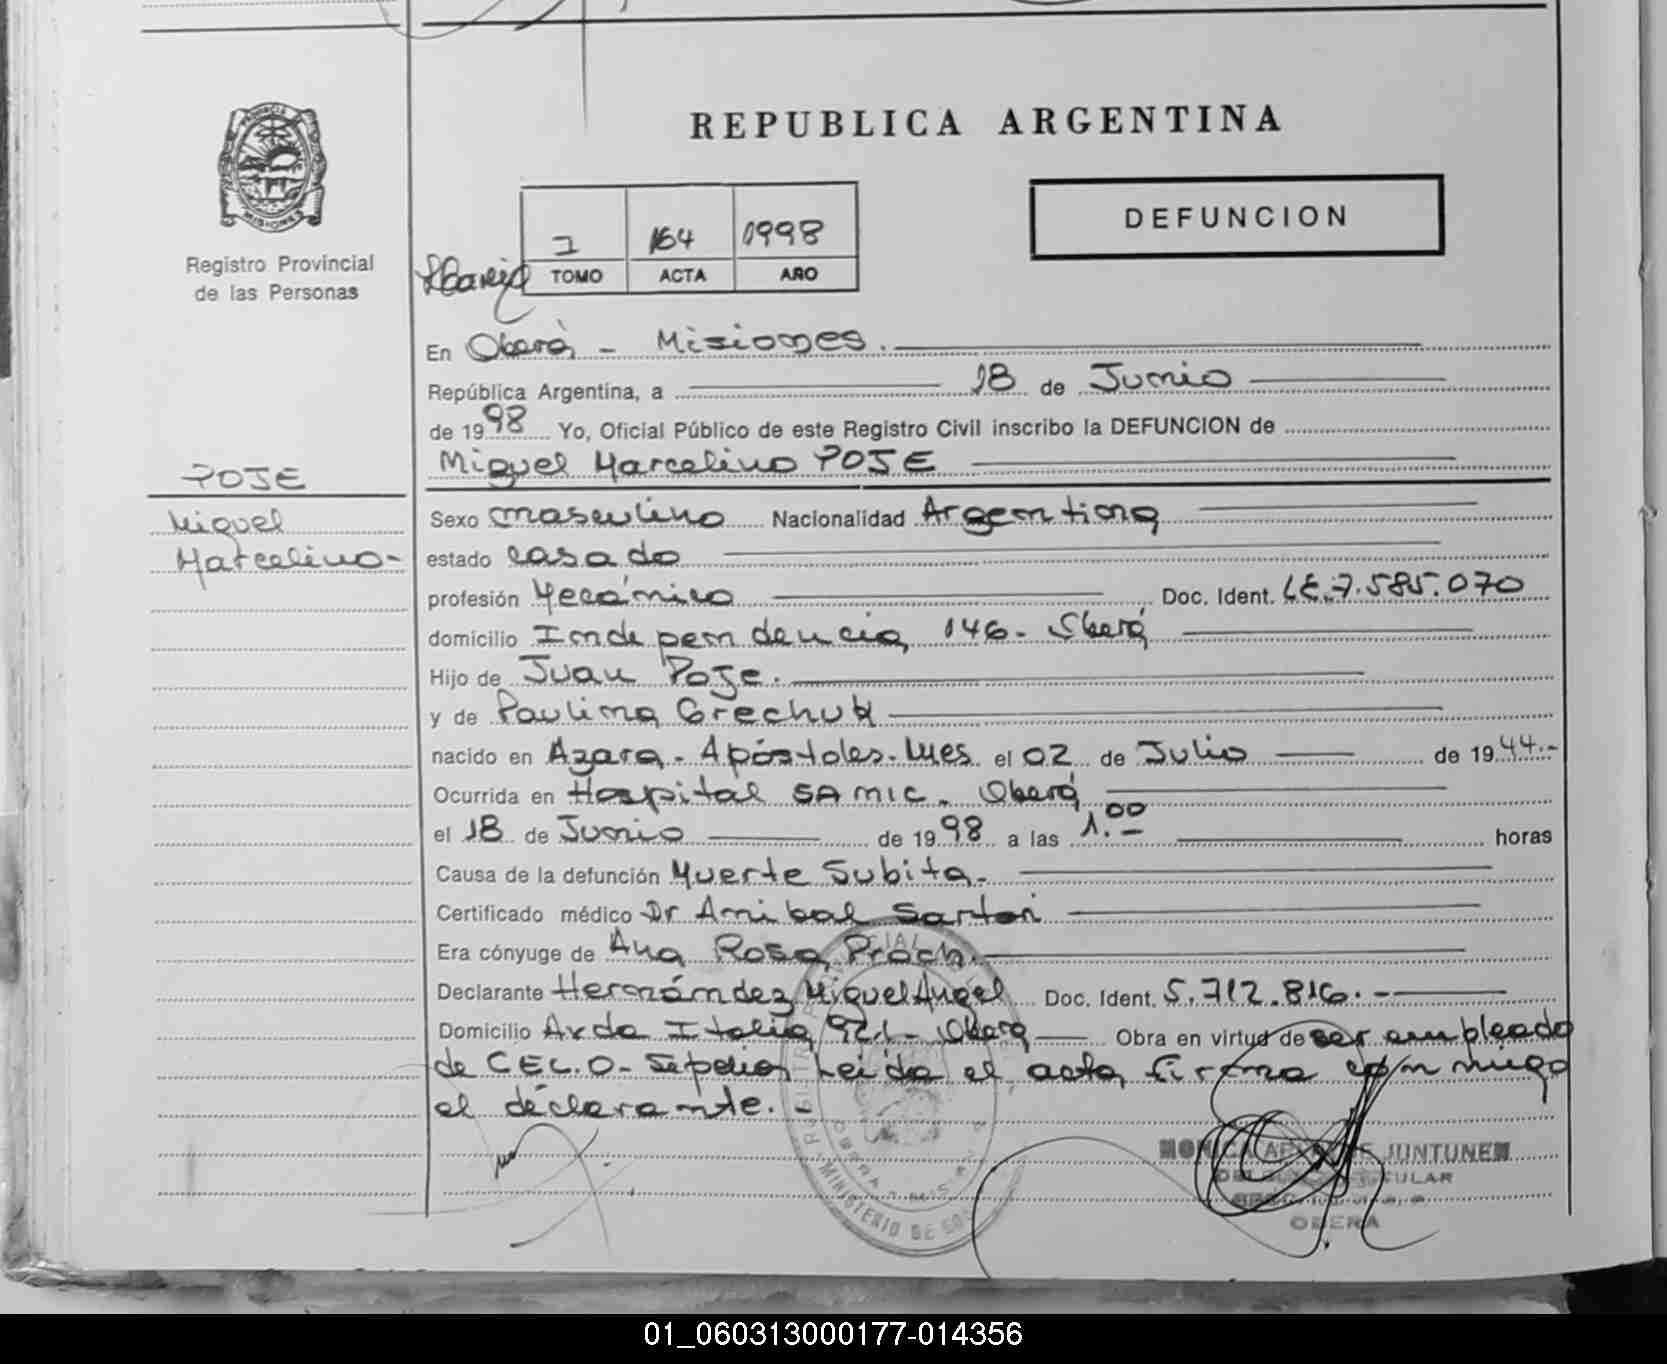 REPUBLICA ARGENTINA
PROVINCIA
MISIONES
Registro Provincial
de las Personas
I 164 1998
TOMO ACTA AÑO
DEFUNCION
En Oberá - Misiones.
República Argentina, a 18 de Junio
de 1998 Yo, Oficial Público de este Registro Civil inscribo la DEFUNCION de
Miguel Marcelino POJE
POJE
Miguel
Marcelino-
Sexo masculino Nacionalidad Argentina
estado casado
profesión Mecánico Doc. Ident. LE.7.585.070
domicilio Independencia 146- Oberá
Hijo de Juan Poje.
y de Paulina Grechuk
nacido en Azara - Apóstoles - Mnes. el 02 de Julio de 1944.-
Ocurrida en Hospital SAMIC. Oberá
el 18 de Junio de 1998 a las 1.00 horas
Causa de la defunción Muerte Subita.
Certificado médico Dr Anibal Sartori
Era cónyuge de Ana Rosa Proch.
Declarante Hernández Miguel Angel Doc. Ident. 5.712.816.-
Domicilio Avda Italia 921 - Oberá Obra en virtud de ser empleado
de CEL.O - Sepelios Leida el acta, firma conmigo
el declarante.-
MINISTERIO DE
JUNTUNEN
OBERA
01_060313000177-014356